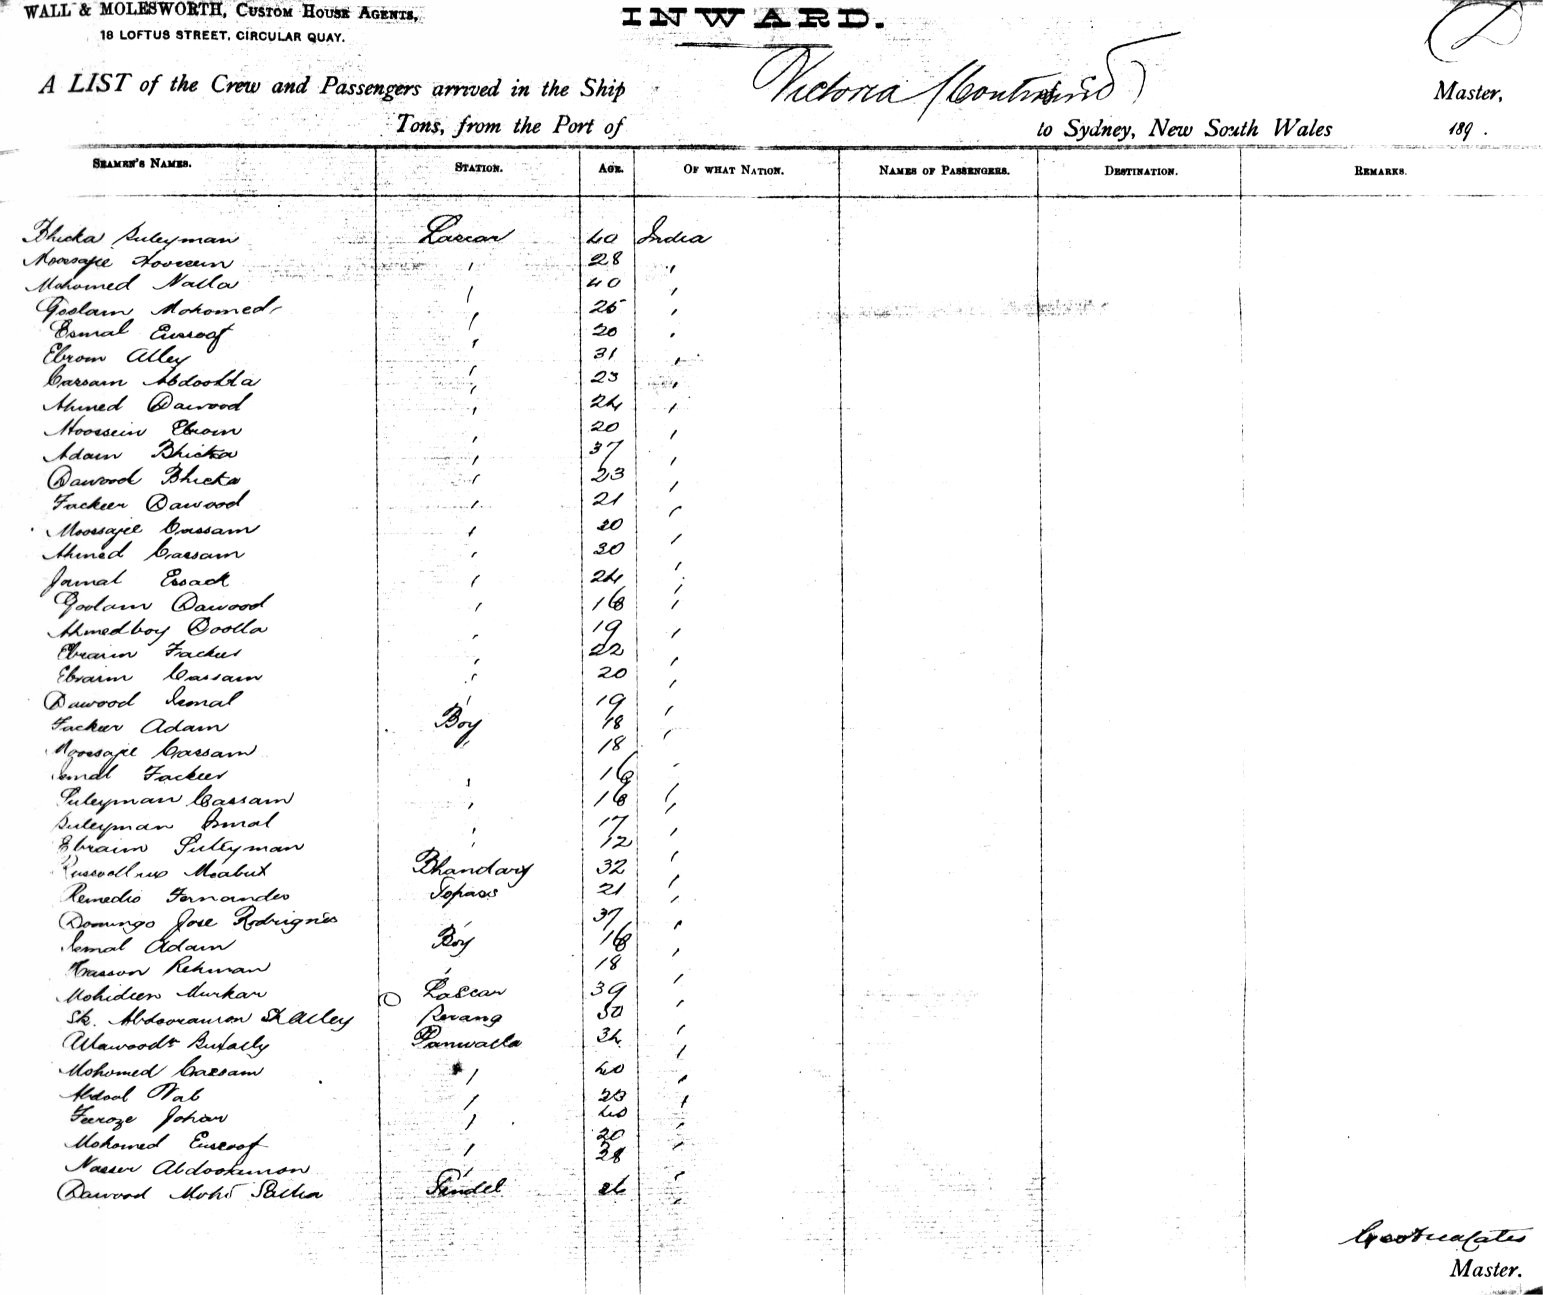 WALL & MOLESWORTH, CUSTOM HOUSE AGENTS,
18 LOFTUS STREET, CIRCULAR QUAY.
INWARD.
A LIST of the Crew and Passengers arrived in the Ship Victoria (Continued) Master,
Tons, from the Port of to Sydney, New South Wales 189 .
SEAMEN'S NAMES. STATION. AGE. OF WHAT NATION. NAMES OF PASSENGERS. DESTINATION. REMARKS.
Bhicka Suleyman Lascar 40 India
Moosajee Hoosein " 28 "
Mohomed Nalla " 40 "
Goolam Mohomed " 25 "
Esmal Eusoof " 20 "
Ebrom Alley " 31 "
Cassam Abdoolla " 23 "
Ahmed Dawood " 24 "
Hoossein Ebrom " 20 "
Adam Bhicka " 37 "
Dawood Bhicka " 23 "
Fackeer Dawood " 21 "
Moosajee Cassam " 20 "
Ahmed Cassam " 30 "
Jamal Essack " 24 "
Goolam Dawood " 18 "
Ahmedboy Doolla " 19 "
Ebraim Fackeer " 22 "
Ebraim Cassam " 20 "
Dawood Ismal " 19 "
Fackeer Adam Boy 18 "
Moosajee Cassam " 18 "
Ismal Fackeer " 16 "
Suleyman Cassam " 16 "
Suleyman Ismal " 17 "
Ebraim Suleyman " 12 "
Bhandary 32 "
Remedio Fernandes Topass 21 "
Domingo Jose Rodrigues " 37 "
Ismal Adam Boy 16 "
Hassan Rehman " 18 "
Mohideen Murkar Lascar 39 "
Sk. Abdooraman Sk Alley Serang 50 "
Allawoodn Buxally Panwalla 34 "
Mohomed Cassam " 40 "
Abdool Wab " 23 "
Feroze Johar " 40 "
Mohomed Eusoof " 20 "
Nasser " 28 "
Dawood Mohd Tindel 26 "
Master.